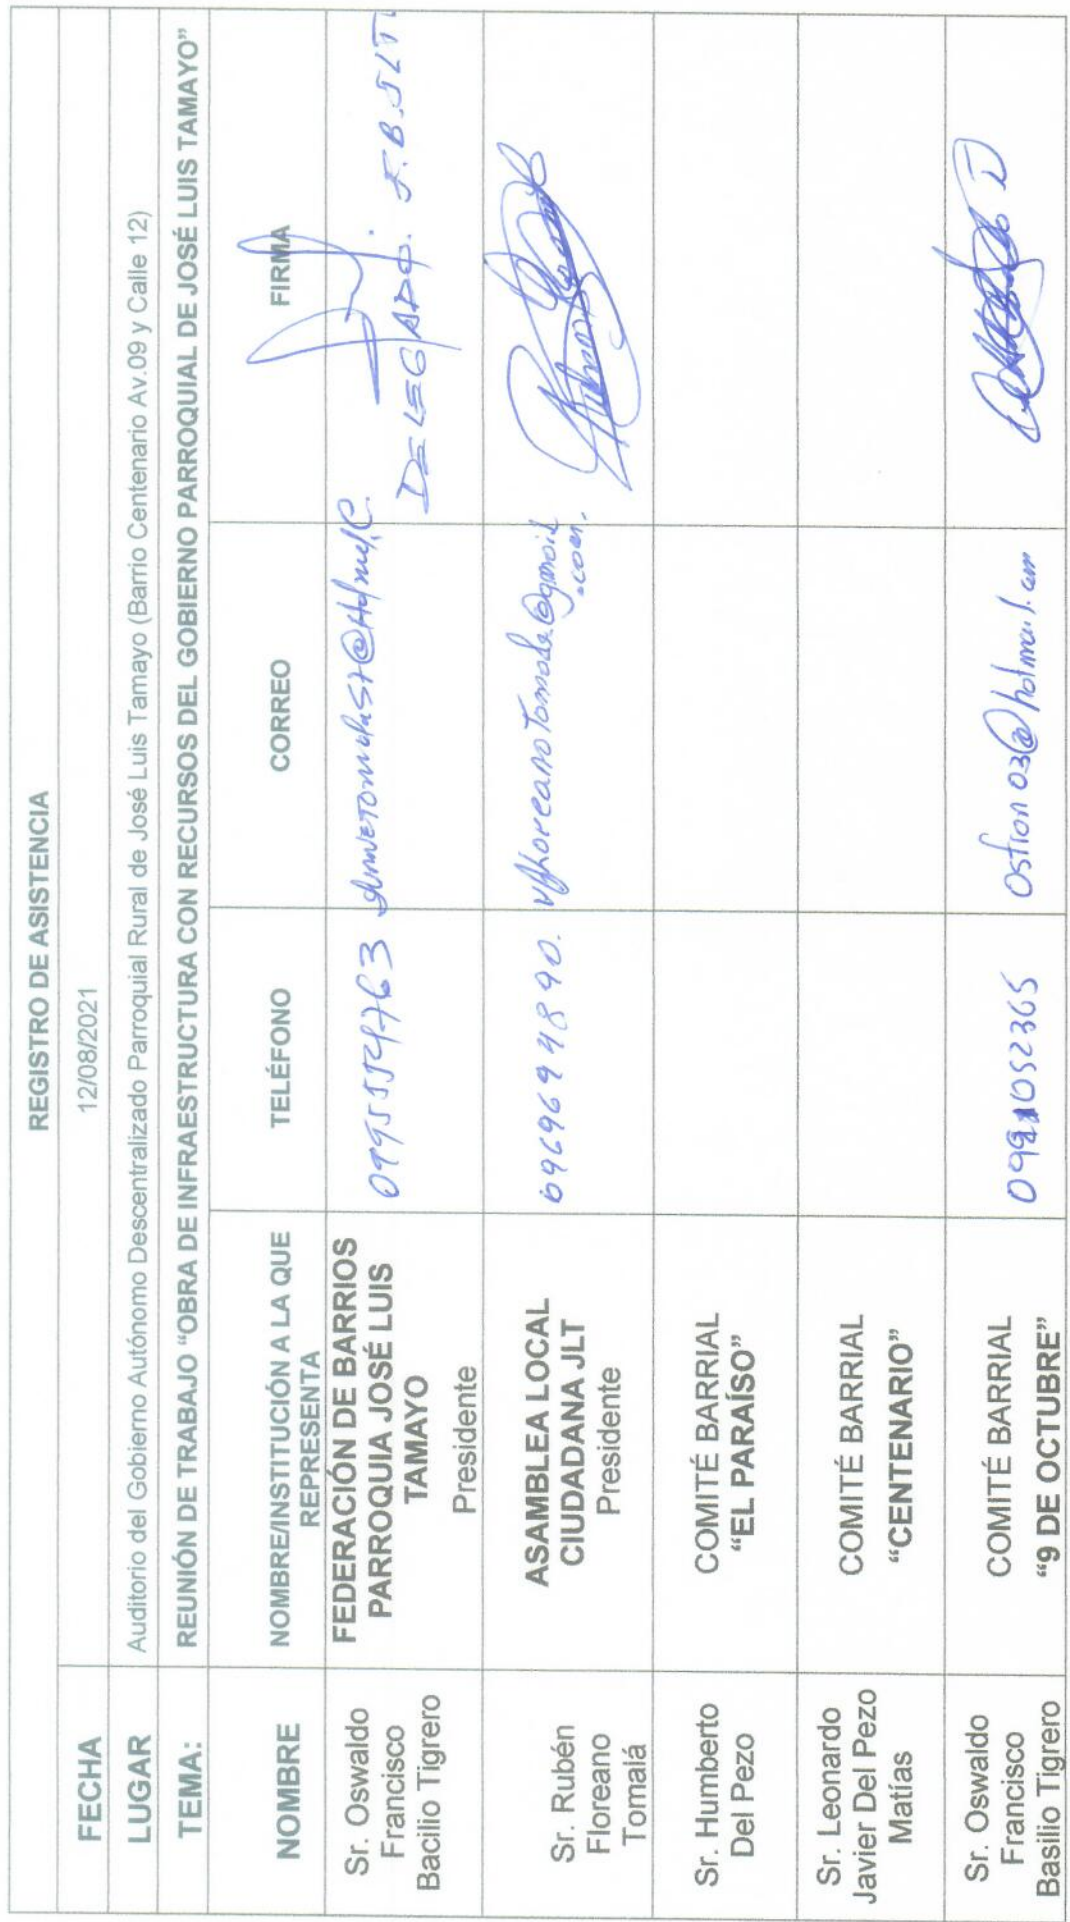 REGISTRO DE ASISTENCIA
FECHA 12/08/2021
LUGAR Auditorio del Gobierno Autónomo Descentralizado Parroquial Rural de José Luis Tamayo (Barrio Centenario Av.09 y Calle 12)
TEMA: REUNIÓN DE TRABAJO “OBRA DE INFRAESTRUCTURA CON RECURSOS DEL GOBIERNO PARROQUIAL DE JOSÉ LUIS TAMAYO”
NOMBRE
NOMBRE/INSTITUCIÓN A LA QUE
REPRESENTA
TELÉFONO
CORREO
FIRMA
Sr. Oswaldo
Francisco
Bacilio Tigrero
FEDERACIÓN DE BARRIOS
PARROQUIA JOSÉ LUIS
TAMAYO
Presidente
DELEGADO. F.B.JLT
Sr. Rubén
Floreano
Tomalá
ASAMBLEA LOCAL
CIUDADANA JLT
Presidente
0969694890.
.com.
Sr. Humberto
Del Pezo
COMITÉ BARRIAL
“EL PARAÍSO”
Sr. Leonardo
Javier Del Pezo
Matías
COMITÉ BARRIAL
“CENTENARIO”
Sr. Oswaldo
Francisco
Basilio Tigrero
COMITÉ BARRIAL
“9 DE OCTUBRE”